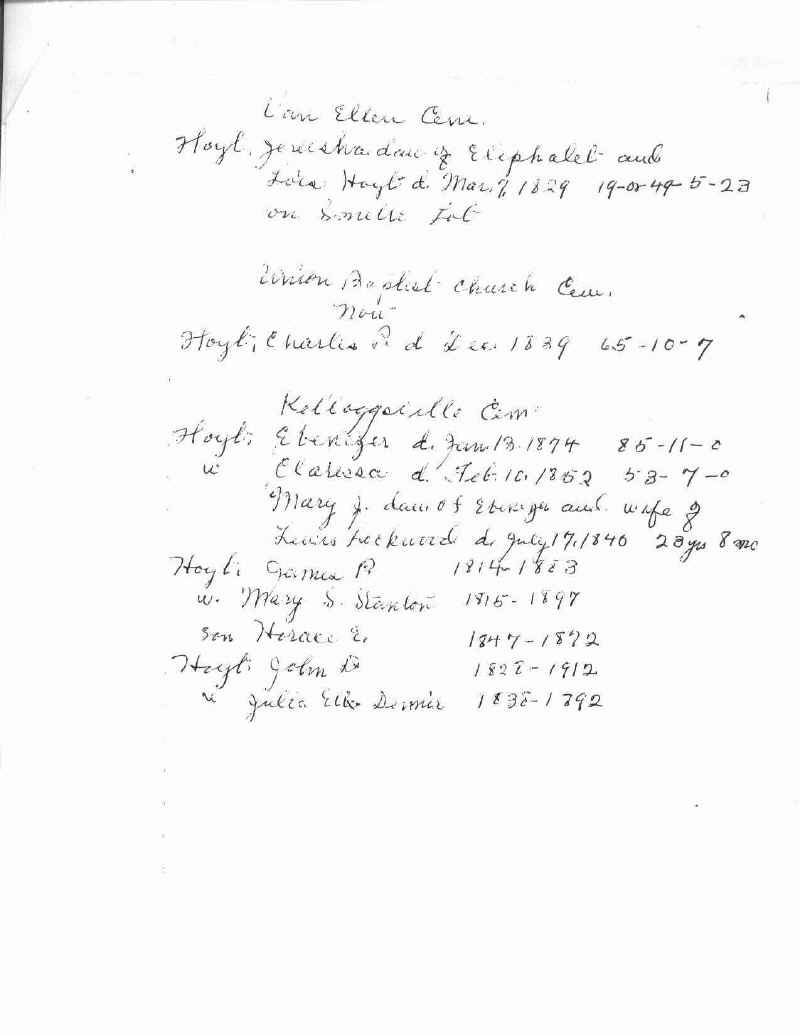 Van Etten Cem.
Hoyt, Jerusha dau of Eliphalet and
Lois Hoyt d. Mar. 7, 1829 19-or 49-5-23
on Lot
Union Baptist Church Cem.
Hoyt, Charles P. d Dec. 1839 65-10-7
Kelloggsville Cem
Hoyt, Ebenezer d. Jan. 13. 1874 85-11-0
w Clarissa d. Feb. 10, 1852 53-7-0
Mary J. dau of Ebenezer and wife of
Lewis Lockwood d. July 17, 1840 23 yrs 8 mo
Hoyt, James P 1814-1883
w. Mary S. Stanton 1815-1897
son Horace E. 1847-1872
Hoyt, John D 1828-1912
w Julia 1838-1892